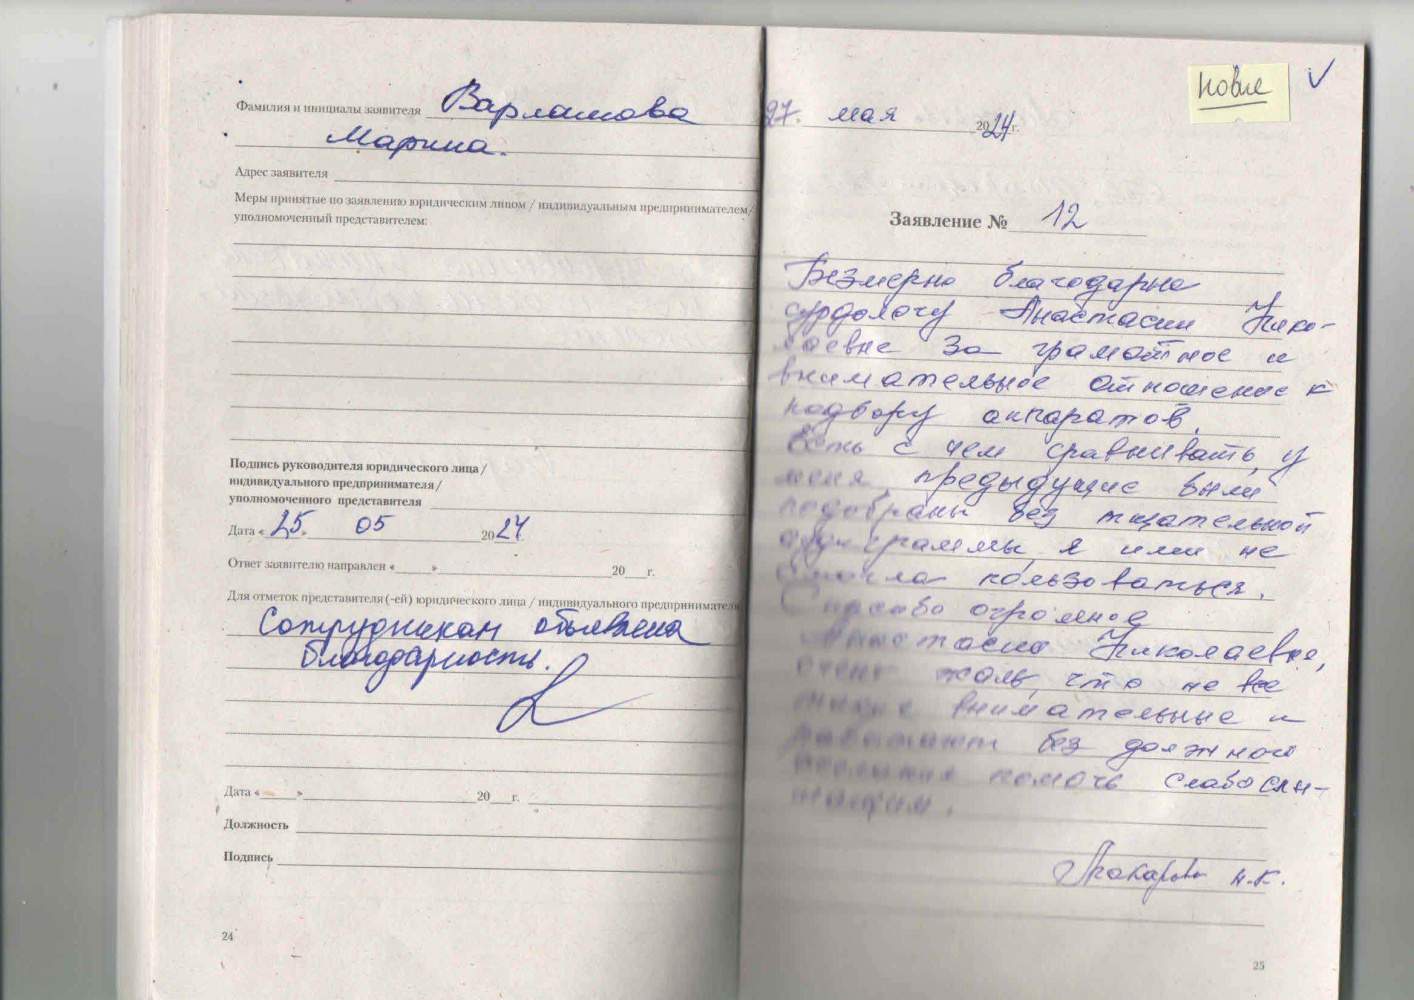 Фамилия и инициалы заявителя Варламова
Марина.
Адрес заявителя
Меры принятые по заявлению юридическим лицом / индивидуальным предпринимателем/
уполномоченный представителем:
Подпись руководителя юридического лица /
индивидуального предпринимателя /
уполномоченного представителя
Дата «25» 05 2024
Ответ заявителю направлен « » 20 г.
Для отметок представителя (-ей) юридического лица / индивидуального предпринимателя
Сотрудникам объявлена
благодарность.
Дата « » 20 г.
Должность
Подпись
24
новые
27. мая 2024г.
Заявление № 12
Безмерно благодарна
сурдологу Анастасии Нико-
лаевне за грамотное и
внимательное отношение к
подбору аппаратов.
Есть с чем сравнивать, у
меня предыдущие были
подобраны без тщательной
аудиграммы, я ими не
смогла пользоваться.
Спасибо огромное
Анастасия Николаевна,
очень жаль, что не все
такие внимательные и
работают без должного
помочь слабослы-
шащим.
Макарова Н.К.
25